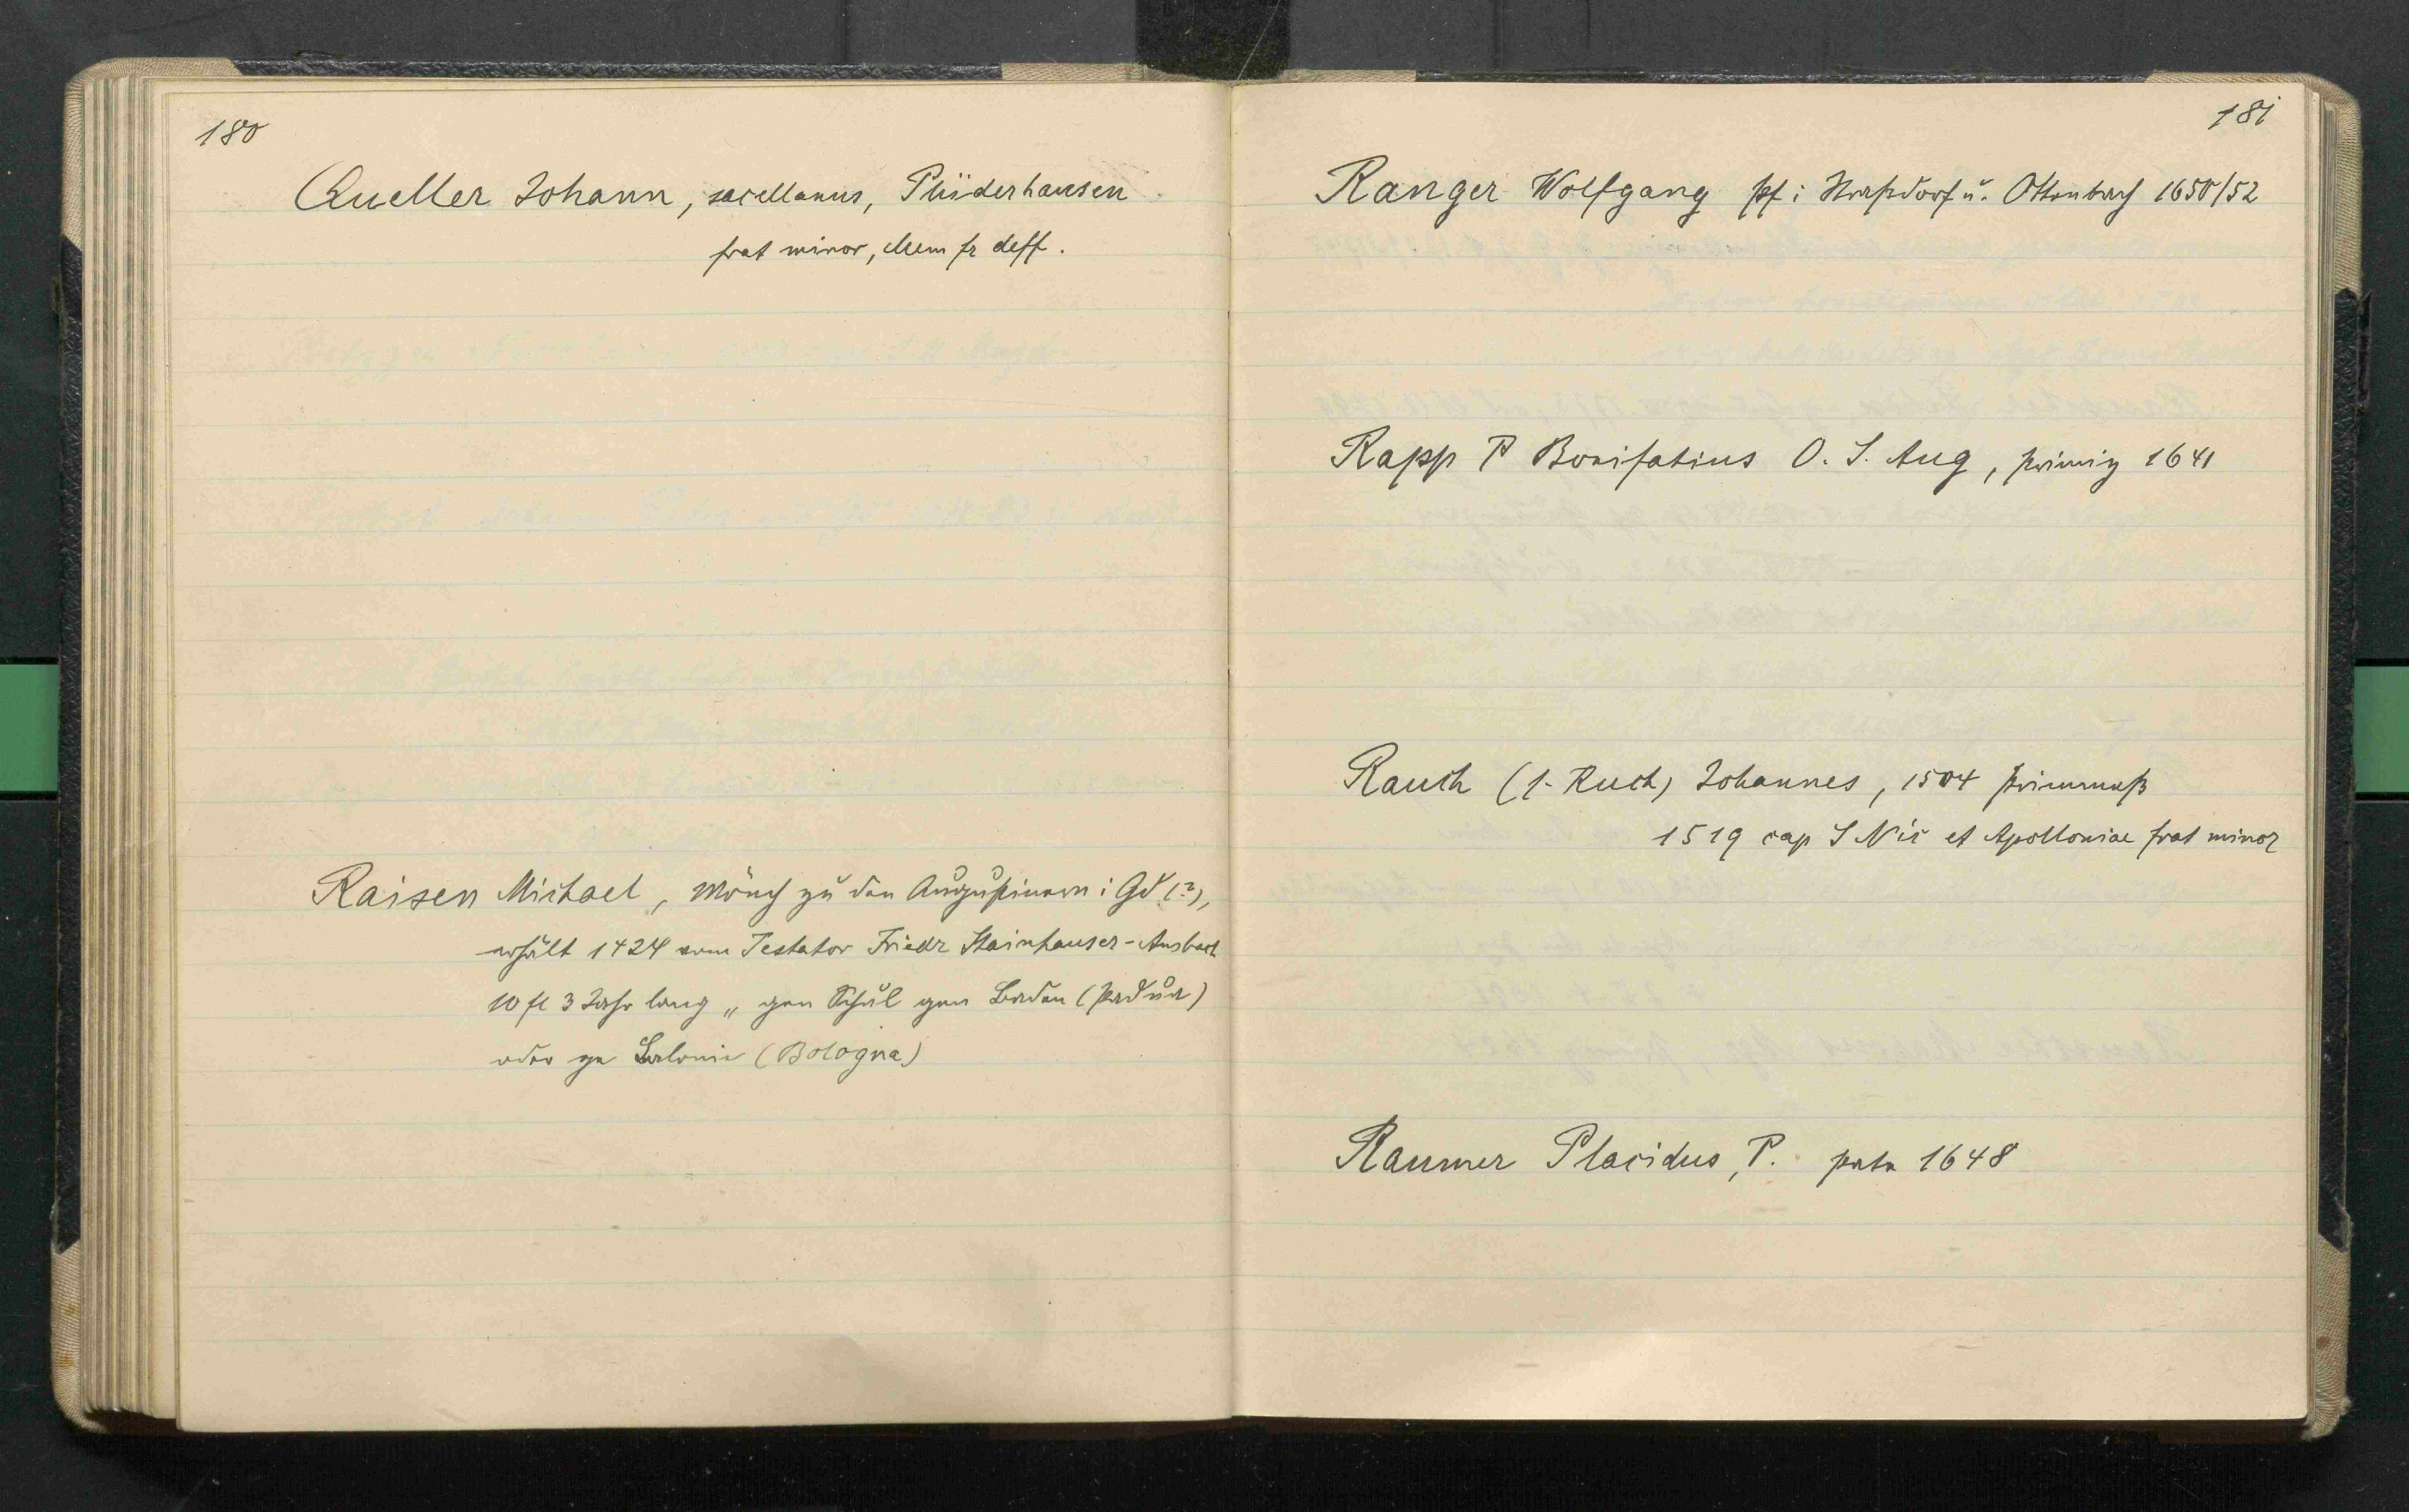 180
Queller Johann, sacellanus, Plüderhausen
frat minor, Mem fr deff.
Raisen Michael, Mönch zu den Augustinern i Gd (?),
erhält 1424 vom Testator Friedr Stainhauser-Ansbach
10 fl 3 Jahr lang „ gen Schul gen Badau (Padua)
oder gen Balonia (Bologna)
181
Ranger Wolfgang Pf i Straßdorf u. Ottenbach 1650/52
Rapp P Bonifatius O. S. Aug, Primiz 1641
Rauch (1. Ruch) Johannes, 1504 Frimmeß
1519 cap S Nic et Apolloniae frat minor
Raumer Placidus, P. 1648